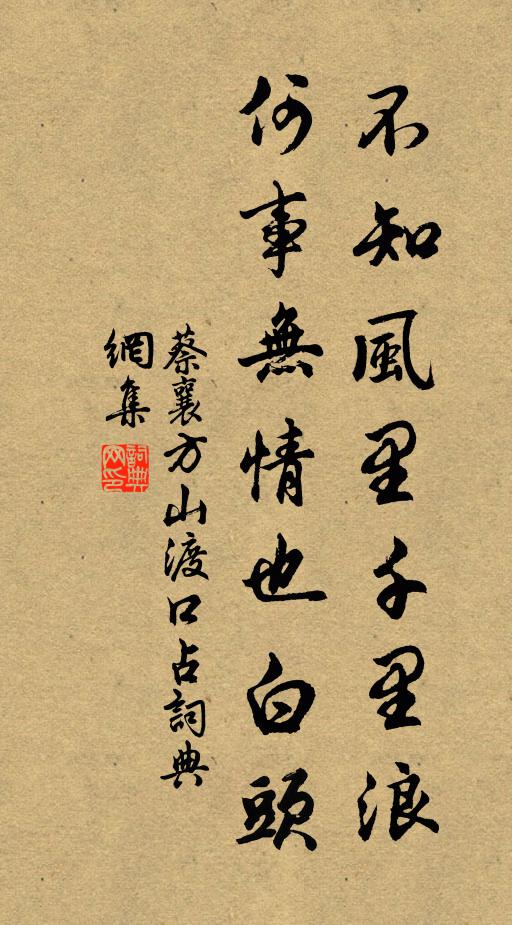 不知風里千里浪
何事無情也白頭
蔡襄方山渡口占詞典
網集
詞典
网印